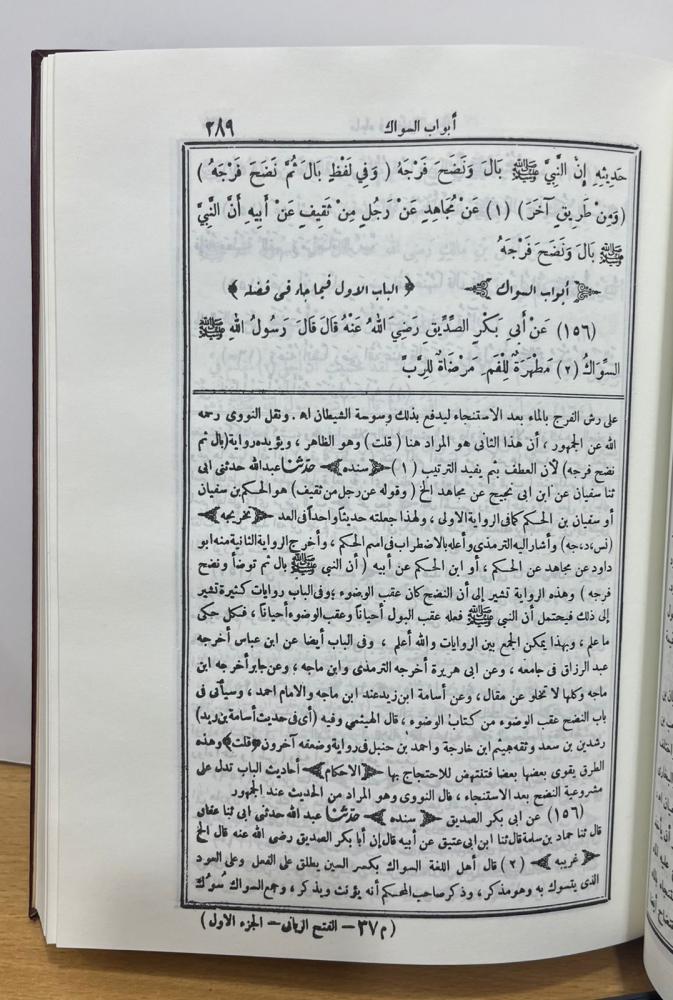 أبواب السواك ٢٨٩
حَدِيثِهِ إِنَّ النَّبِيَّ ﷺ بَالَ وَنَضَحَ فَرْجَهُ ( وَفِي لَفْظٍ بَالَ ثُمَّ نَضَحَ فَرْجَهُ )
(وَمِنْ طَرِيقٍ آخَرَ) (١) عَنْ مُجَاهِدٍ عَنْ رَجُلٍ مِنْ ثَقِيفٍ عَنْ أَبِيهِ أَنَّ النَّبِيَّ
ﷺ بَالَ وَنَضَحَ فَرْجَهُ
أبواب السواك ﴿ الباب الاول فيما جاء فى فضله ﴾
(١٥٦) عَنْ أَبِي بَكْرٍ الصِّدِّيقِ رَضِيَ اللهُ عَنْهُ قَالَ قَالَ رَسُولُ اللهِ ﷺ
السِّوَاكُ (٢) مَطْهَرَةٌ لِلْفَمِ. مَرْضَاةٌ لِلرَّبِّ
على رش الفرج بالماء بعد الاستنجاء ليدفع بذلك وسوسة الشيطان اهـ. ونقل النووى رحمه
الله عن الجمهور ، أن هذا الثانى هو المراد هنا ( قلت ) وهو الظاهر ، ويؤيده رواية (بال ثم
نضح فرجه) لأن العطف بثم يفيد الترتيب (١) ﴿ سنده ﴾ حدثنا عبدالله حدثنى ابى
ثنا سفيان عن ابن ابى نجيح عن مجاهد الخ ( وقوله عن رجل من ثقيف) هو الحكم بن سفيان
أو سفيان بن الحكم كما فى الرواية الاولى ، ولهذا جعلته حديثا واحداً فى العد ﴿ تخريجه ﴾
(نس،د،جه) وأشار اليه الترمذى وأعله بالاضطراب فى اسم الحكم ، وأخرج الرواية الثانية منه ابو
داود عن مجاهد عن الحكم ، أو ابن الحكم عن أبيه ( أن النبى ﷺ بال ثم توضأ ونضح
فرجه ) وهذه الرواية تشير إلى أن النضح كان عقب الوضوء ؛ وفى الباب روايات كثيرة تشير
إلى ذلك فيحتمل أن النبى ﷺ فعله عقب البول أحياناً وعقب الوضوء أحياناً ، فكل حكى
ما علم ، وبهذا يمكن الجمع بين الروايات والله أعلم ، وفى الباب أيضا عن ابن عباس أخرجه
عبد الرزاق فى جامعه ، وعن ابى هريرة أخرجه الترمذى وابن ماجه ؛ وعن جابر أخرجه ابن
ماجه وكلها لا تخلو عن مقال ، وعن أسامة ابن زيد عند ابن ماجه والامام احمد ، وسيأتى فى
باب النضح عقب الوضوء من كتاب الوضوء ، قال الهيثمى وفيه (أى فى حديث أسامة بن زيد)
رشدين بن سعد وثقه هيثم ابن خارجة واحمد بن حنبل فى رواية وضعفه آخرون ﴿قلت﴾ وهذه
الطرق يقوى بعضها بعضا فتنتهض للاحتجاج بها ﴿ الاحكام ﴾ أحاديث الباب تدل على
مشروعية النضح بعد الاستنجاء ، قال النووى وهو المراد من الحديث عند الجمهور
(١٥٦) عن ابى بكر الصديق ﴿ سنده ﴾ حدثنا عبد الله حدثنى ابى ثنا عفان
قال ثنا حماد بن سلمة قال ثنا ابن ابى عتيق عن أبيه قال إن أبا بكر الصديق رضى الله عنه قال الخ
﴿ غريبه ﴾ (٢) قال أهل اللغة السواك بكسر السين يطلق على الفعل وعلى العود
الذى يتسوك به وهو مذكر ، وذكر صاحب المحكم أنه يؤنث ويذكر ، وجمع السواك سُوُك
( م ٣٧ – الفتح الربانى – الجزء الاول )